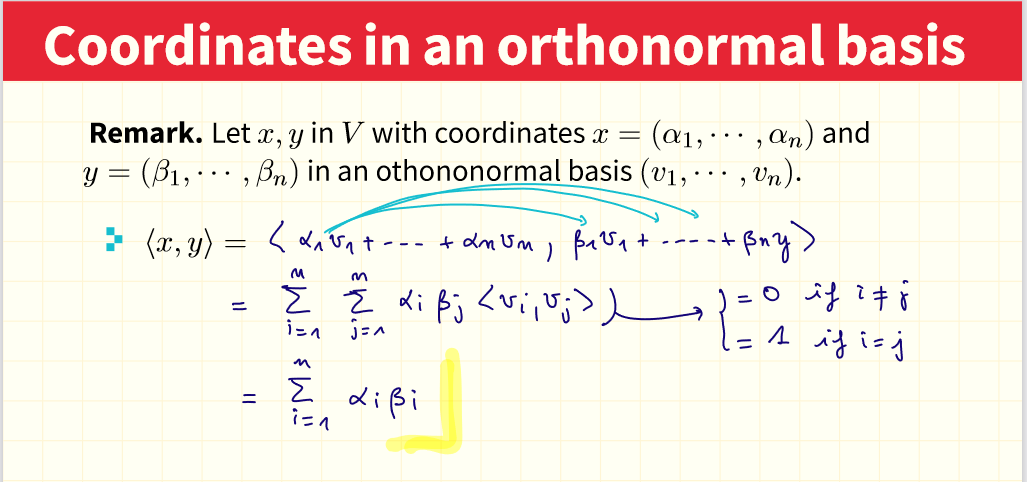 Coordinates in an orthonormal basis
Remark. Let x, y in V with coordinates x = (α₁, ⋯ , αₙ) and
y = (β₁, ⋯ , βₙ) in an othononormal basis (v₁, ⋯ , vₙ).
⟨x, y⟩ = ⟨α₁v₁ + --- + αₙvₙ, β₁v₁ + ---- + βₙy⟩
= ∑ᵢ₌₁ⁿ ∑ⱼ₌₁ⁿ αᵢ βⱼ ⟨vᵢ, vⱼ⟩) → { = 0 if i ≠ j
= 1 if i = j
= ∑ᵢ₌₁ⁿ αᵢ βᵢ